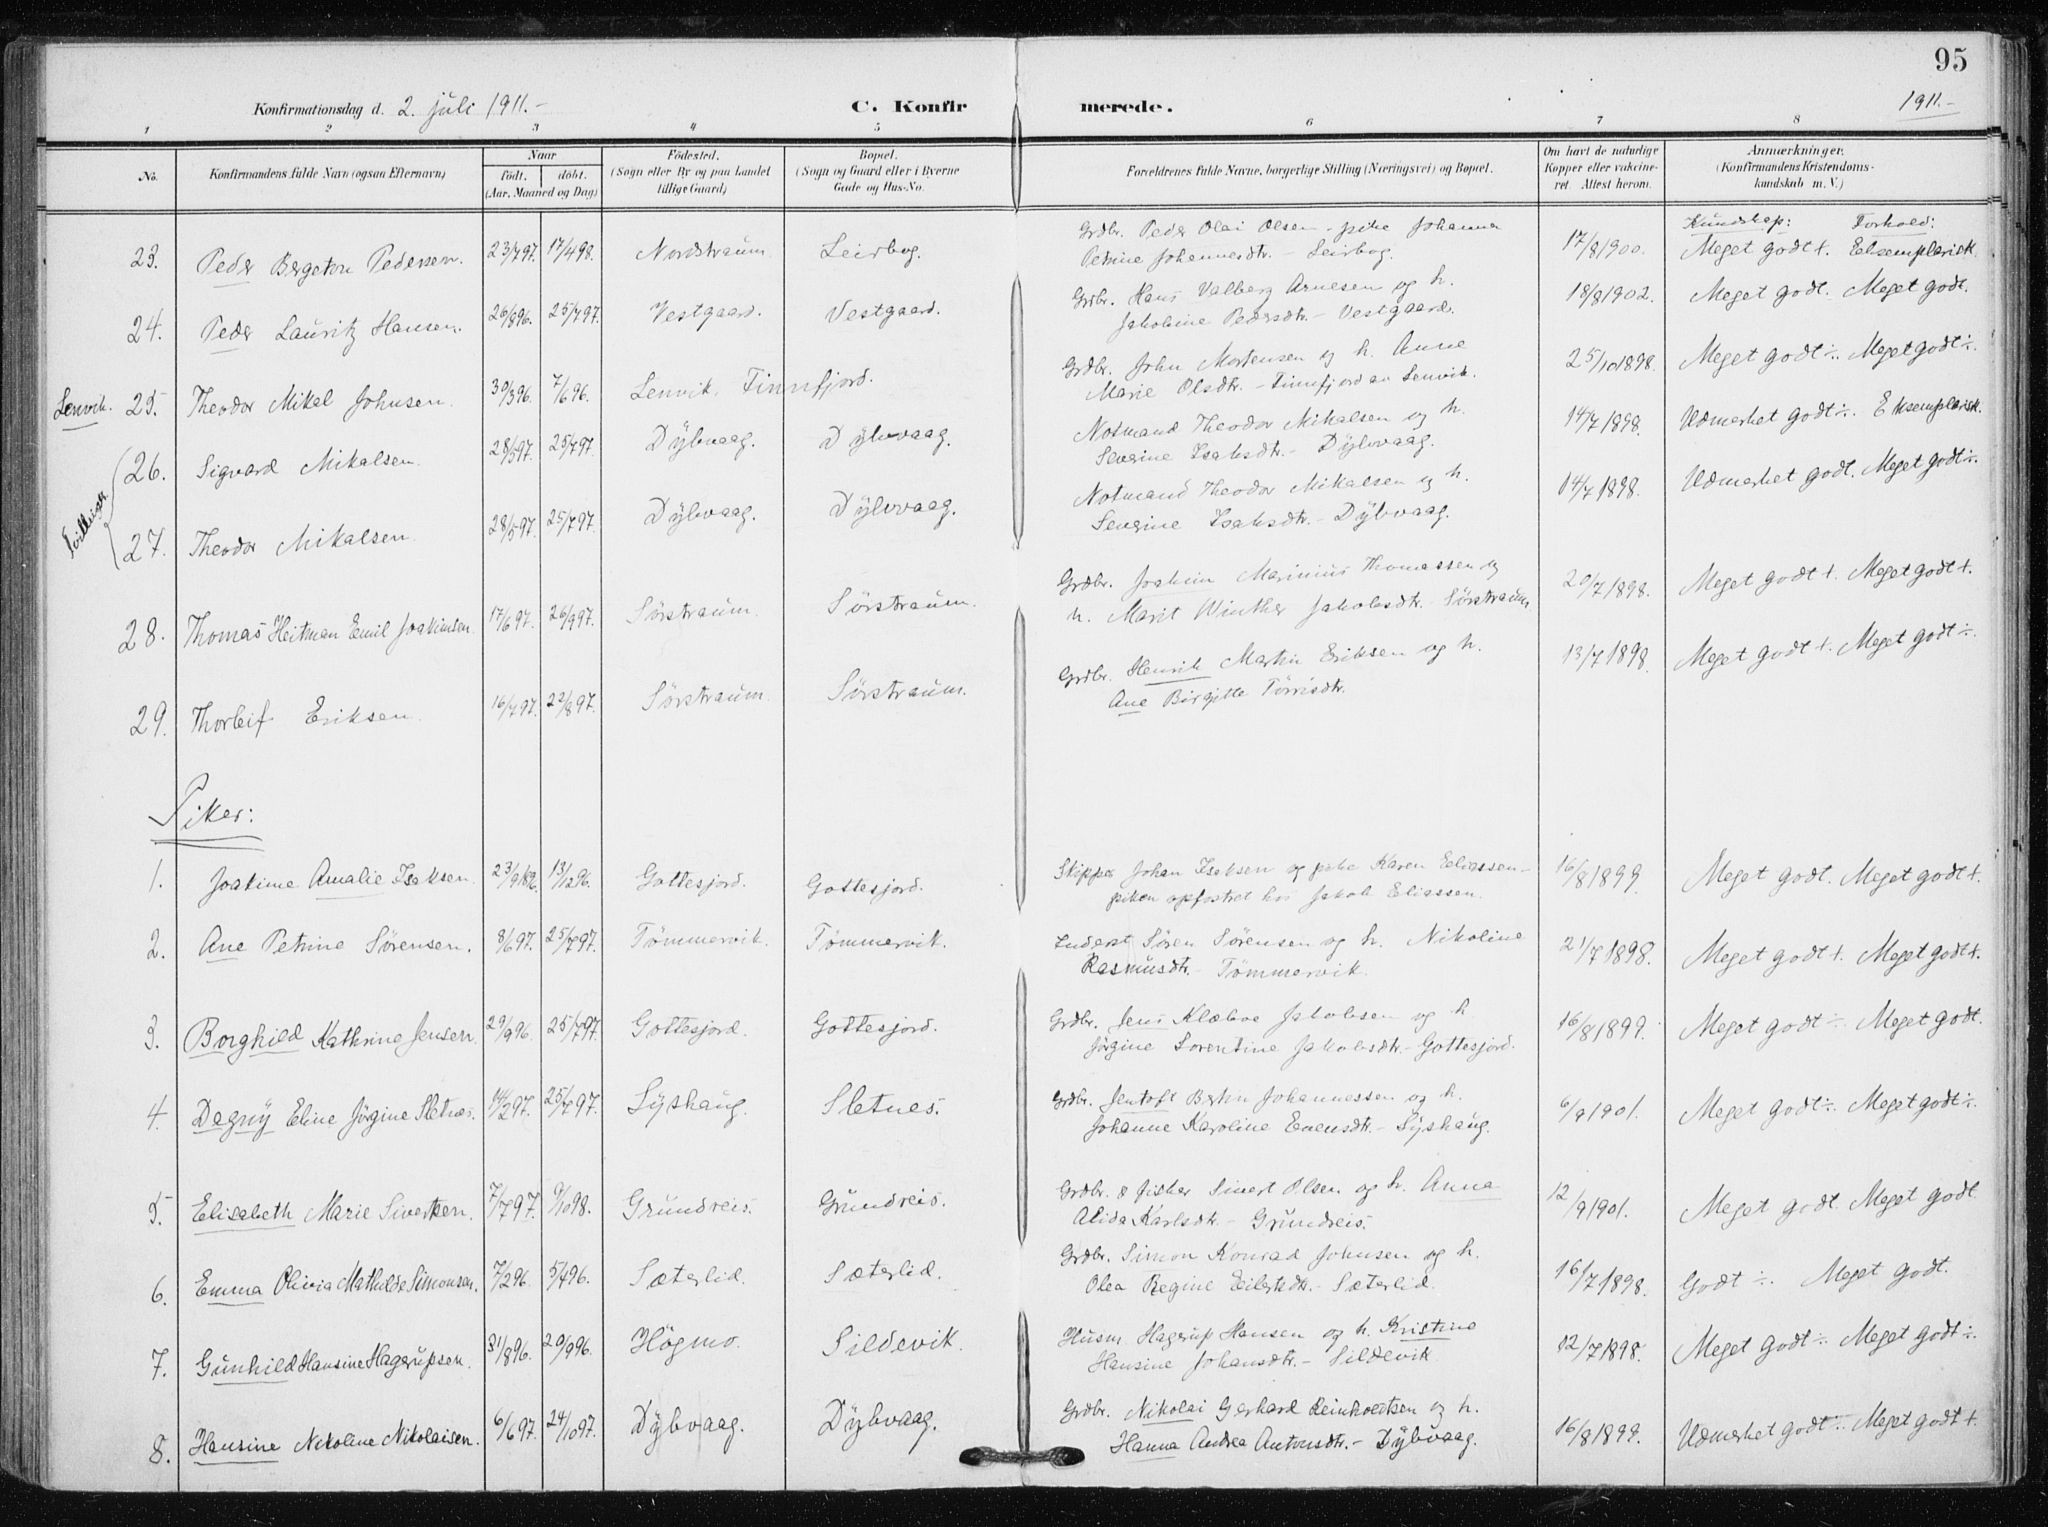 95
Konfirmationsdag d. 2. juli 1911.-
C. Konfirmerede.
1911.-
1 2 3 4 5 6 7 8
No.
Konfirmandens fulde Navn (ogsaa Efternavn)
Naar
födt. döbt.
(Aar, Maaned og Dag)
Födested.
(Sogn eller By og paa Landet
tillige Gaard)
Bopæl.
(Sogn og Gaard eller i Byerne
Gade og Hus-No.
Forældrenes fulde Navne, borgerlige Stilling (Næringsvei) og Bopæl.
Om havt de naturlige
Kopper eller vakcine-
ret. Attest herom.
Anmærkninger.
(Konfirmandens Kristendoms-
kundskab m. V.)
Kundskap: Forhold:
23. Peder Bergeton Pedersen. 23/7 97. 17/4 98. Nordstraum. Leirbog. Grdbr. Peder Olai Olsen - pike Johanna
Petrine Johannesdtr. - Leirbog. 17/8 1900. Meget godt +. Eksemplarisk.
24. Peder Lauritz Hansen. 26/8 96. 25/7 97. Vestgaard. Vestgaard. Grdbr. Hans Valberg Arnesen og h.
Jakobine Pedersdtr. - Vestgaard. 18/8 1902. Meget godt. Meget godt.
Lenvik. 25. Theodor Mikal Johnsen. 30/3 96. 7/6 96. Lenvik, Finnfjord. Grdbr. John Mortensen og h. Anne
Marie Olsdtr. - Finnfjord av Lenvik. 25/10 1898. Meget godt ÷. Meget godt ÷.
Tvillinger.
26. Sigvard Mikalsen. 28/5 97. 25/7 97. Dÿbvaag. Dÿbvaag. Notmand Theodor Mikalsen og h.
Sevrine Isaksdtr. - Dÿbvaag. 14/7 1898. Udmerket godt ÷. Eksemplarisk.
27. Theodor Mikalsen. 28/5 97. 25/7 97. Dÿbvaag. Dÿbvaag. Notmand Theodor Mikalsen og h.
Sevrine Isaksdtr. - Dÿbvaag. 14/7 1898. Udmerket godt. Meget godt ÷.
28. Thomas Heitman Emil Joakimsen. 17/6 97. 26/9 97. Sörstraum. Sörstraum. Grdbr. Joakim Marinius Thomassen og
h. Marit Winther Jakobsdtr. - Sörstraum. 20/7 1898. Meget godt +. Meget godt +.
29. Thorleif Eriksen. 16/7 97. 22/8 97. Sörstraum. Sörstraum. Grdbr. Henrik Martin Eriksen og h.
Ane Birgitte Törrisdtr. 13/7 1898. Meget godt +. Meget godt ÷.
Piker:
1. Joakime Amalie Isaksen. 23/9 96. 13/12 96. Gottesjord. Gottesjord. Skipper Johan Isaksen og pike Karen Eliassen -
piken opfostret hos Jakob Eliassen. 16/8 1899. Meget godt. Meget godt +.
2. Ane Petrine Sörensen. 8/6 97. 25/7 97. Tömmervik. Tömmervik. Inderst Sören Sörensen og h. Nikoline
Rasmusdtr. - Tömmervik. 21/7 1898. Meget godt +. Meget godt +.
3. Borghild Kathrine Jensen. 29/9 96. 25/7 97. Gottesjord. Gottesjord. Grdbr. Jens Klæboe Jakobsen og h.
Jörgine Lorentine Jakobsdtr. - Gottesjord. 16/8 1899. Meget godt ÷. Meget godt.
4. Dagnÿ Eline Jörgine Sletnes. 14/2 97. 25/7 97. Lÿshaug. Sletnes. Grdbr. Jentoft Bertin Johannessen og h.
Johanne Karoline Evensdtr. - Lÿshaug. 6/9 1901. Meget godt ÷. Meget godt ÷.
5. Elisabeth Marie Sivertsen. 7/7 97. 9/10 98. Grundreis. Grundreis. Grdbr. & fisker Sivert Olsen og h. Anna
Alida Karlsdtr. - Grundreis. 12/9 1901. Meget godt. Meget godt.
6. Emma Olivia Mathilde Simonsen. 7/2 96. 5/4 96. Sæterlid. Sæterlid. Grdbr. Simon Konrad Johnsen og h.
Olea Regine Eilertsdtr. - Sæterlid. 16/7 1898. Godt ÷. Meget godt.
7. Gunhild Hansine Hagerupsen. 31/8 96. 20/9 96. Högmo. Sildevik. Husm. Hagerup Hansen og h. Kristine
Hansine Johansdtr. - Sildevik. 12/7 1898. Meget godt ÷. Meget godt ÷.
8. Hansine Nikoline Nikolaisen. 6/6 97. 24/10 97. Dÿbvaag. Dÿbvaag. Grdbr. Nikolai Gerhard Reinholdtsen og h.
Hanna Andrea Antonsdtr. - Dÿbvaag. 16/8 1899. Udmerket godt ÷. Meget godt +.